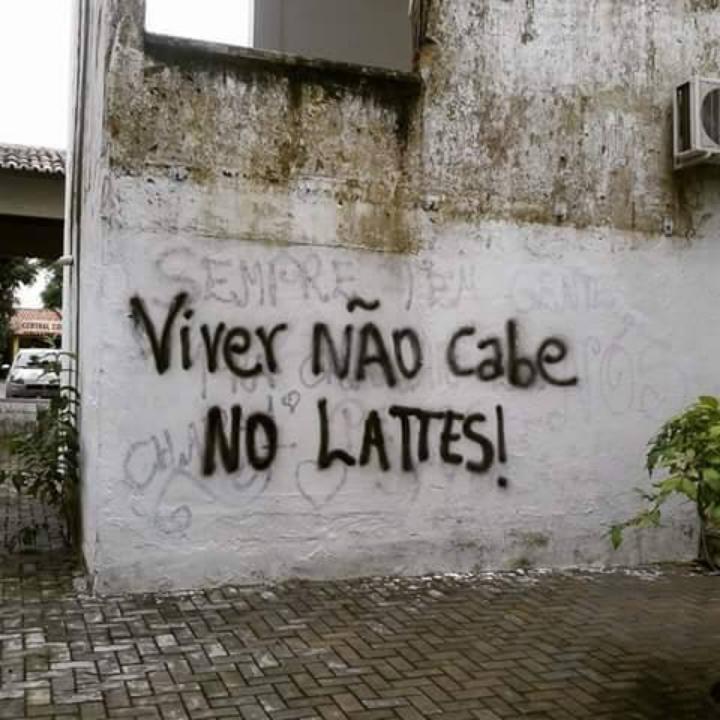 SEMPRE TEM GENTE
Viver NÃO cabe
NO LATTES!